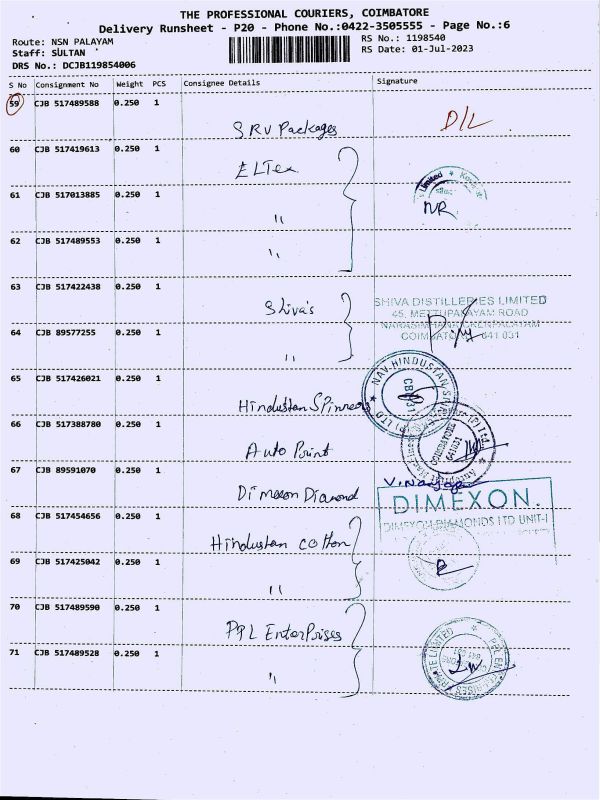 THE PROFESSIONAL COURIERS, COIMBATORE
Delivery Runsheet - P20 - Phone No.:0422-3505555 - Page No.:6
Route: NSN PALAYAM
RS No.: 1198540
Staff: SULTAN
RS Date: 01-Jul-2023
DRS No.: DCJB119854006
S No Consignment No Weight PCS Consignee Details Signature
59 CJB 517489588 0.250 1
SRV Packages D/L
60 CJB 517419613 0.250 1
ELTex
61 CJB 517013885 0.250 1
Limited
NR
"
62 CJB 517489553 0.250 1
"
63 CJB 517422438 0.250 1
Shiva's
SHIVA DISTILLERIES LIMITED
45, METTUPALAYAM ROAD
64 CJB 89577255 0.250 1
COIMBATORE 641 031
"
65 CJB 517426021 0.250 1
NAV HINDUSTAN
Hindustan SPinners
66 CJB 517388780 0.250 1
COIMBATORE
641031
Auto Print
67 CJB 89591070 0.250 1
Dimexon Diamond
DIMEXON.
DIMEXON DIAMONDS LTD UNIT-I
68 CJB 517454656 0.250 1
Hindustan cotton
69 CJB 517425042 0.250 1
"
70 CJB 517489590 0.250 1
PPL EnterPrises
71 CJB 517489528 0.250 1
PPL ENTERPRISES PRIVATE LIMITED
"